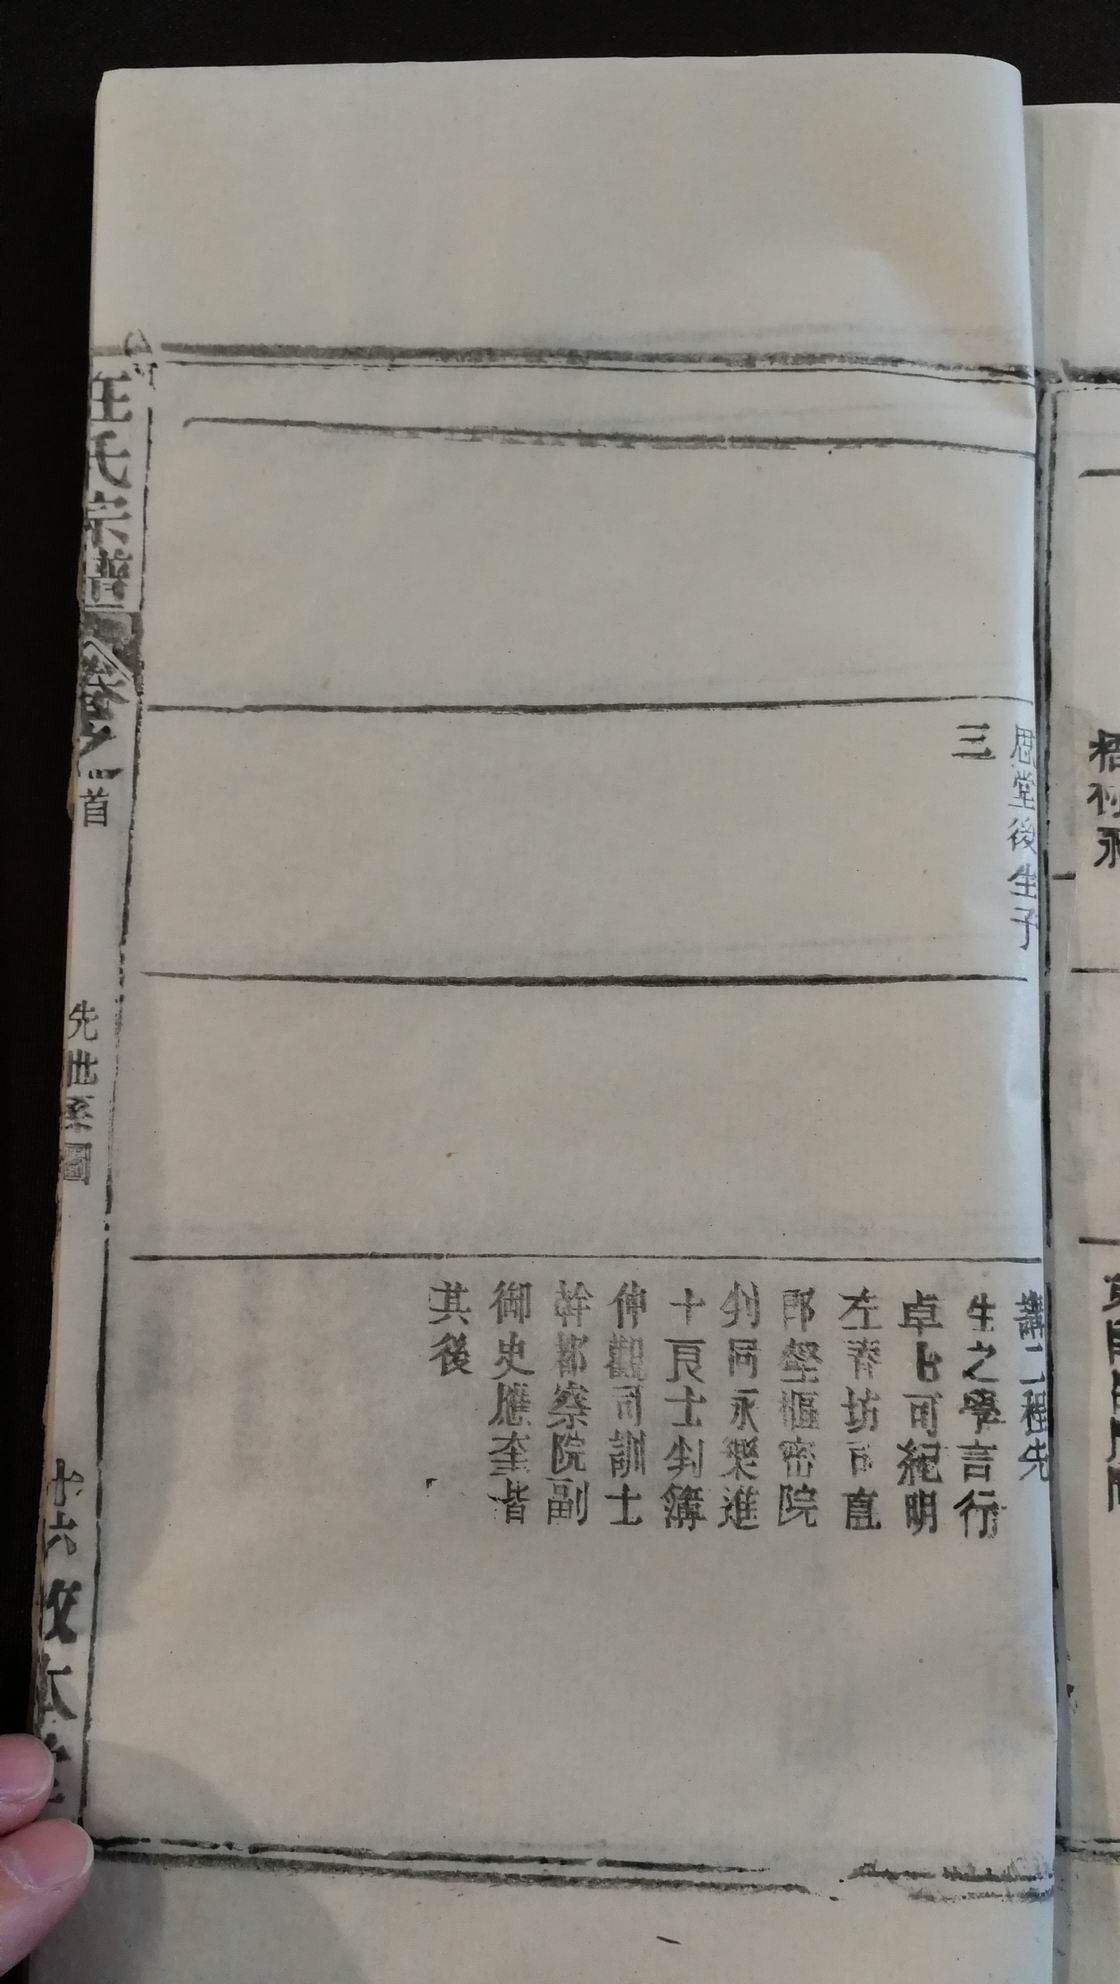 思堂後生子
三
講二程先
生之學言行
卓七可紀明
左春坊司直
郎壑樞密院
判同永樂進
士良士判簿
伸觀司訓士
幹都察院副
御史應奎皆
其後
汪氏宗譜
卷之
首
先世系圖
十六
敦本堂